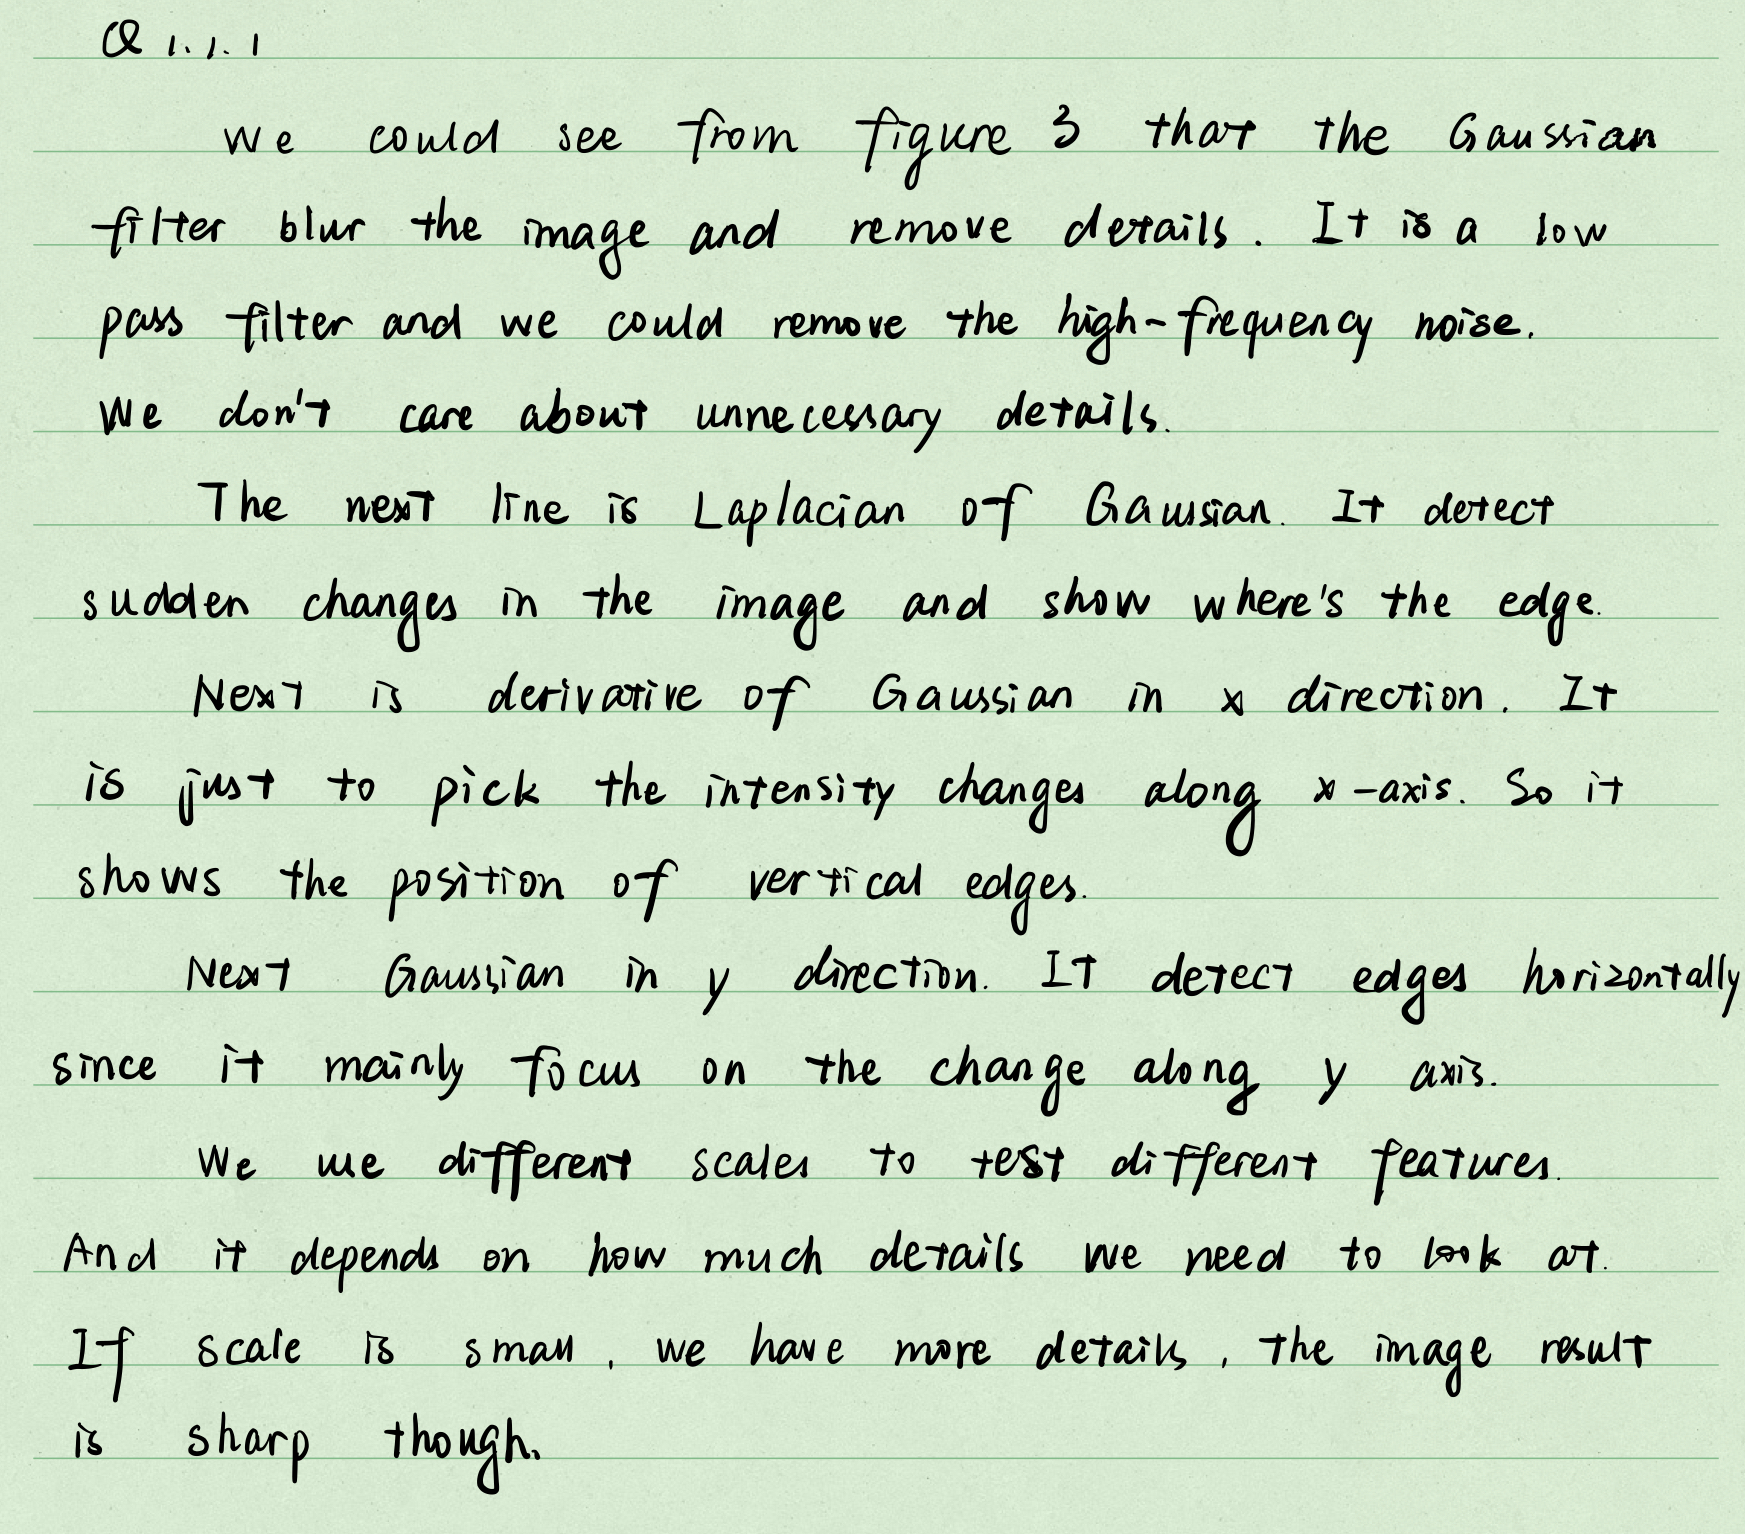 Q 1.1.1
We could see from figure 3 that the Gaussian
filter blur the image and remove details. It is a low
pass filter and we could remove the high-frequency noise.
We don't care about unnecessary details.
The next line is Laplacian of Gaussian. It detect
sudden changes in the image and show where's the edge.
Next is derivative of Gaussian in x direction. It
is just to pick the intensity changes along x-axis. So it
shows the position of vertical edges.
Next Gaussian in y direction. It detect edges horizontally
since it mainly focus on the change along y axis.
We use different scales to test different features.
And it depends on how much details we need to look at.
If scale is small, we have more details, the image result
is sharp though.